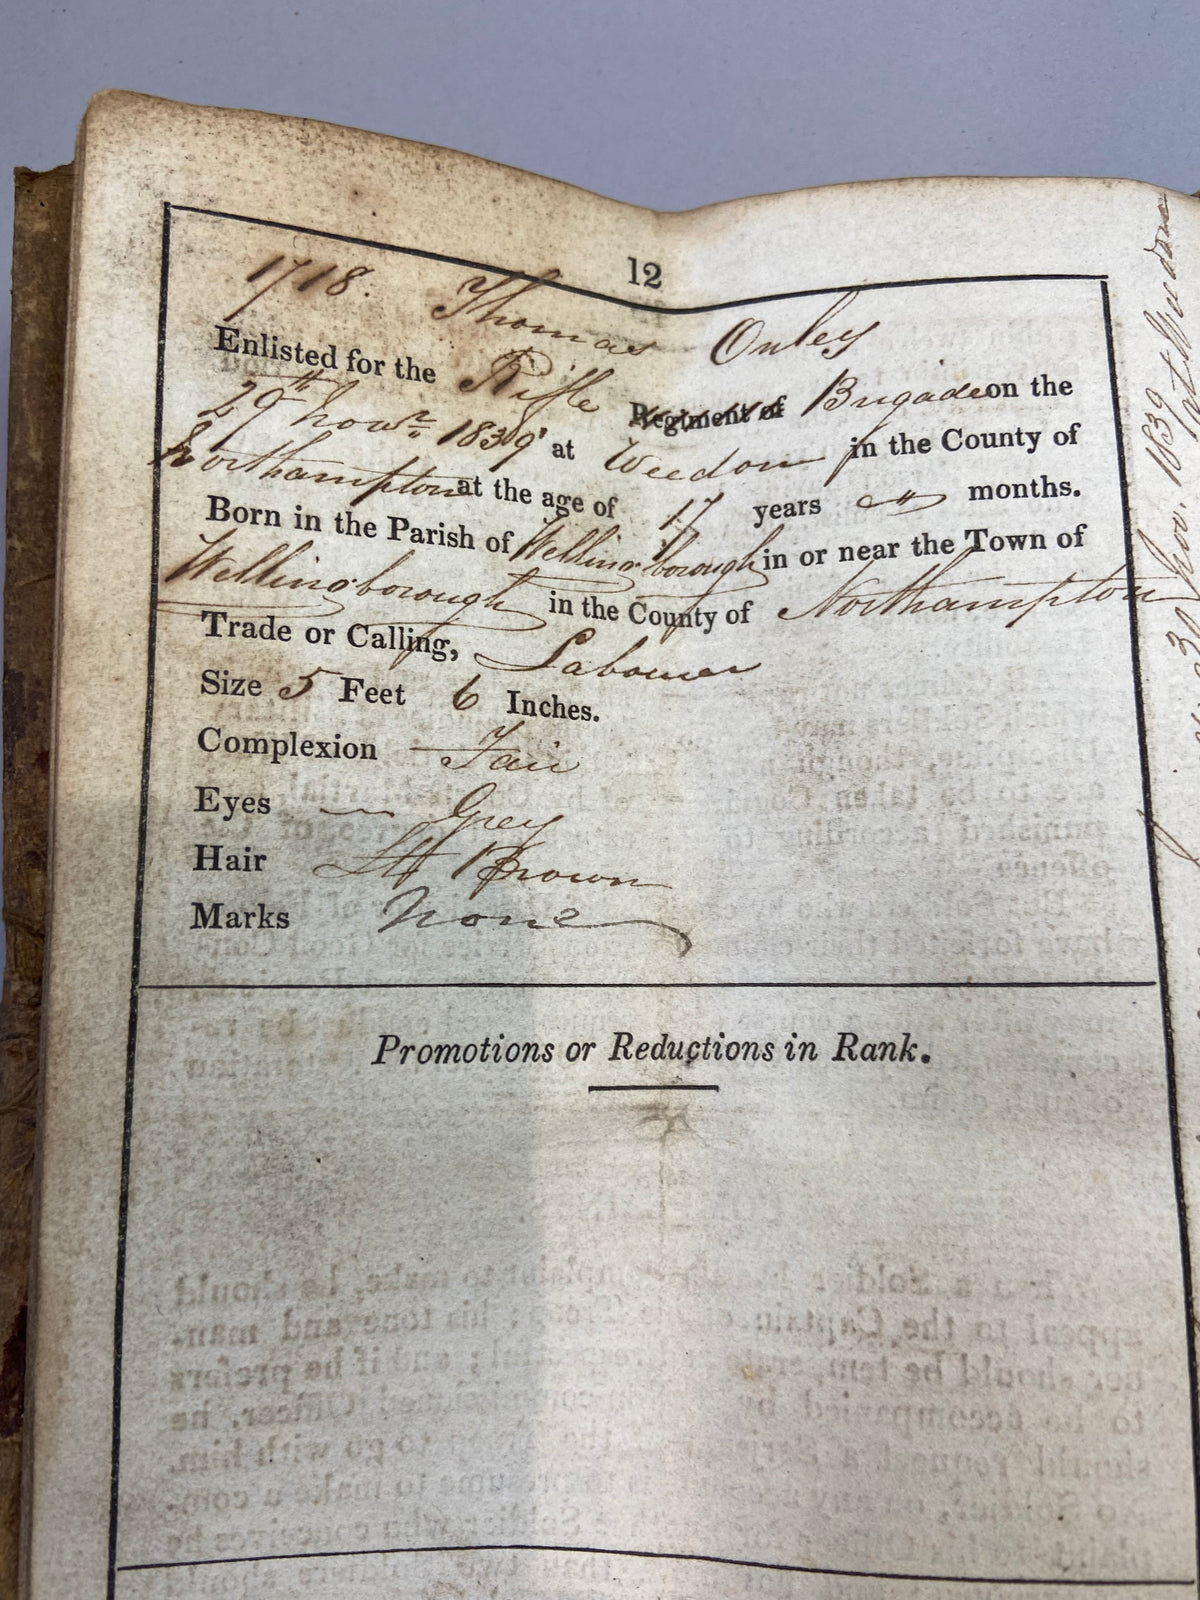 12
1718. Thomas Onley
Enlisted for the Rifle Regiment of Brigade on the
29th Novr. 1839 at Weedon in the County of
Northampton at the age of 17 years " months.
Born in the Parish of Wellingborough in or near the Town of
Wellingborough in the County of Northampton
Trade or Calling, Labourer
Size 5 Feet 6 Inches.
Complexion Fair
Eyes Grey
Hair Lt Brown
Marks None
Promotions or Reductions in Rank.
30 Nov. 1839 at Weedon